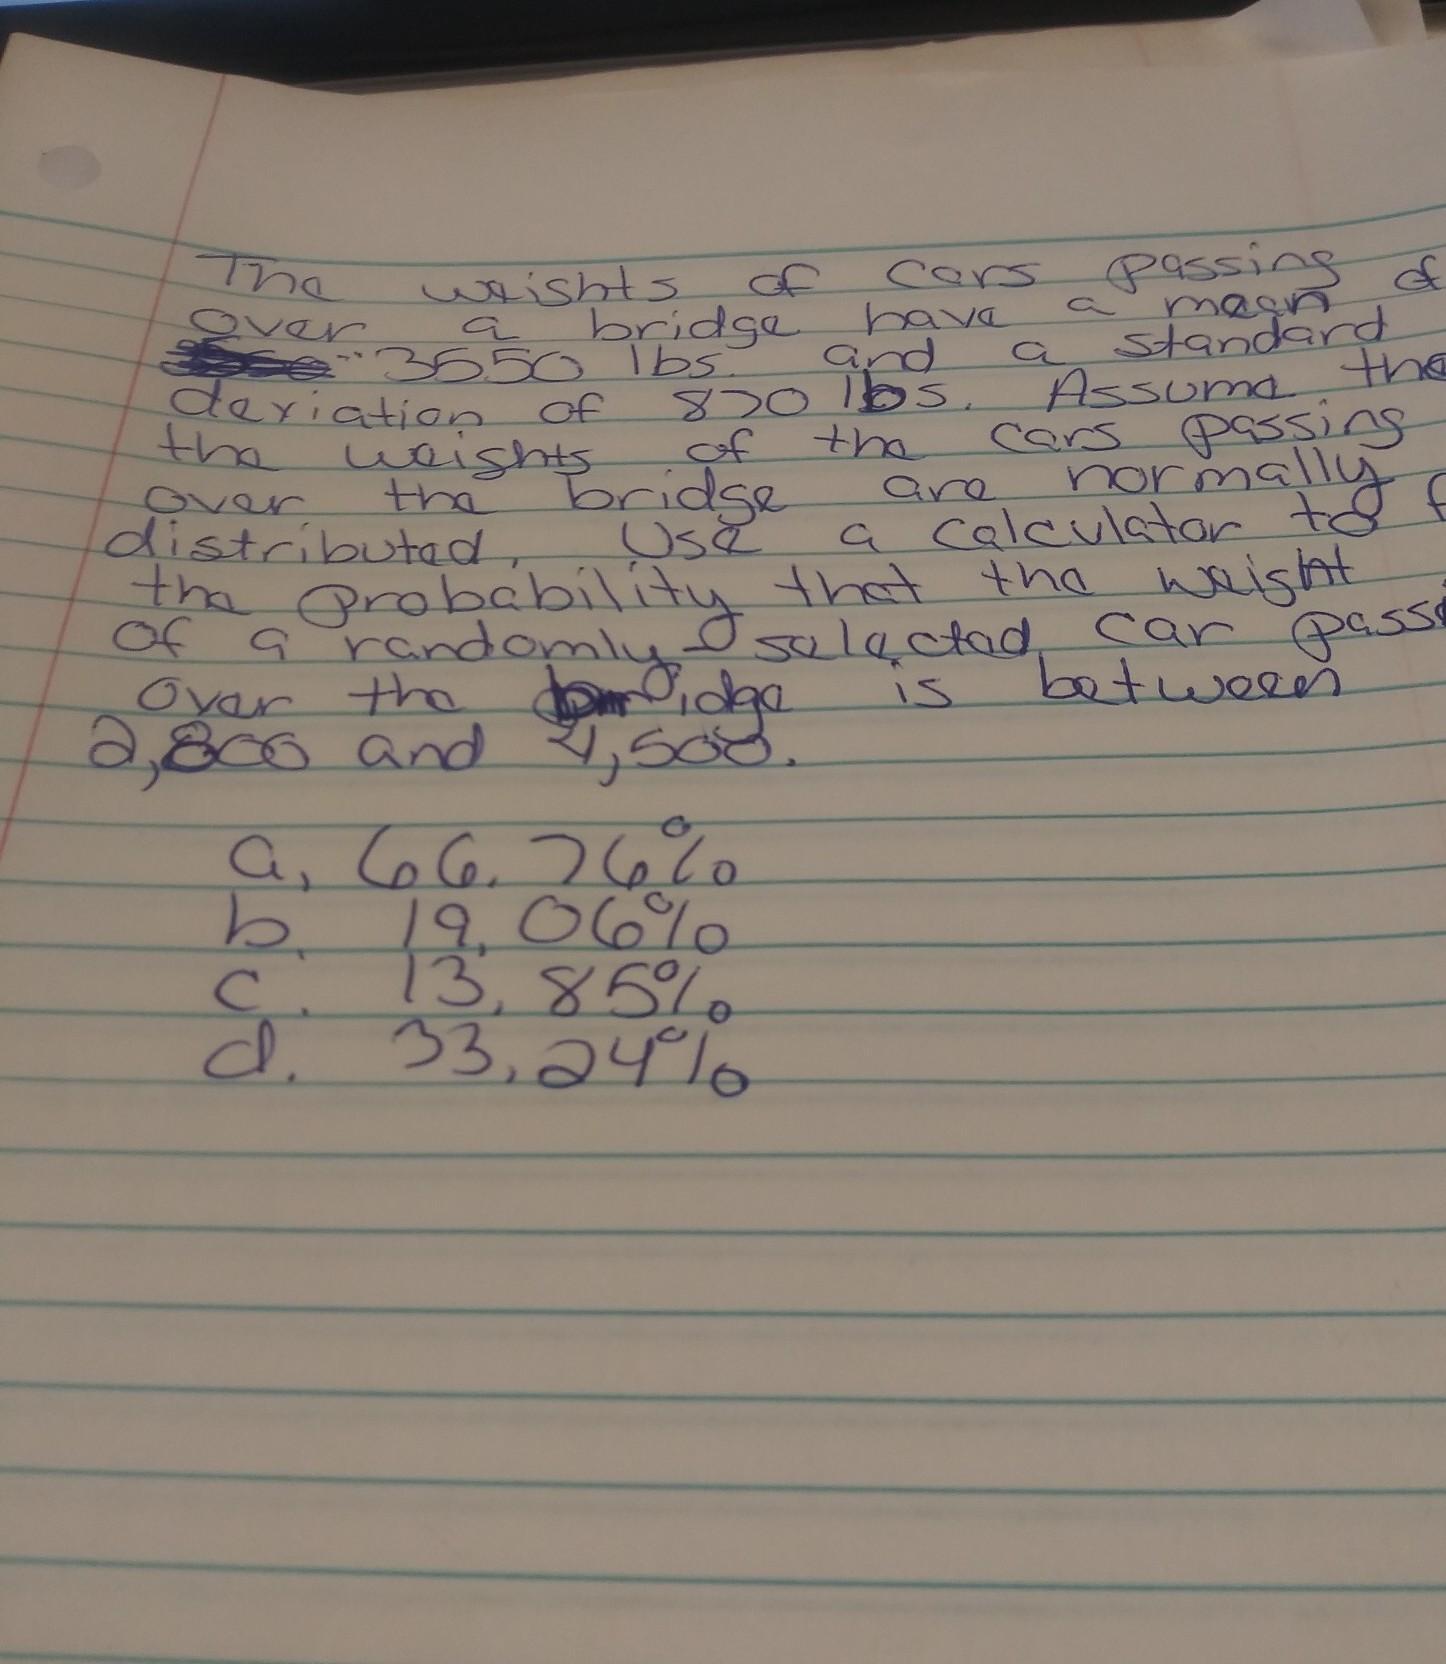 The weights of cars passing
over a bridge have a mean of
3550 lbs. and a standard
deviation of 870 lbs. Assume the
the weights of the cars passing
over the bridge are normally
distributed, Use a calculator to f
the probability that the weight
of a randomly selected car pass
over the bridge is between
2,800 and 4,500.
a, 66.76%
b. 19.06%
c. 13.85%
d. 33.24%